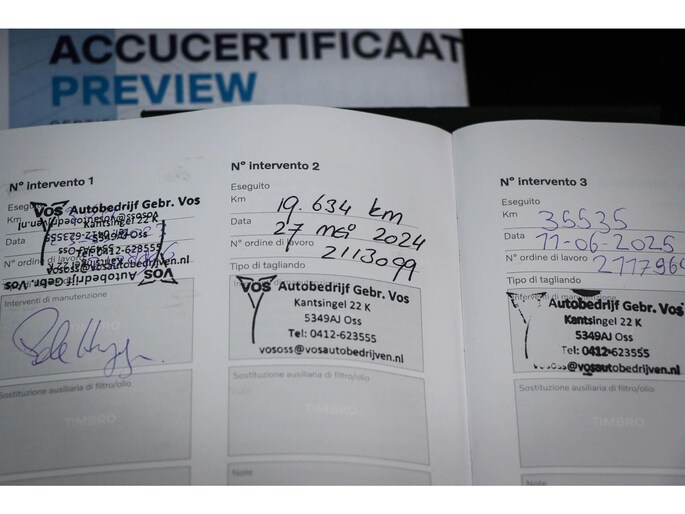 ACCUCERTIFICAAT
PREVIEW
N° intervento 1
Eseguito
Km
Data
N° ordine di lavoro
Vos Autobedrijf Gebr. Vos
Kantsingel 22 K
5349AJ Oss
Tel: 0412-623555
Interventi di manutenzione
Sostituzione ausiliaria di filtro/olio
TIMBRO
N° intervento 2
Eseguito
Km 19.634 km
Data 27 mei 2024
N° ordine di lavoro 2113099
Tipo di tagliando
Vos Autobedrijf Gebr. Vos
Kantsingel 22 K
5349AJ Oss
Tel: 0412-623555
vososs@vosautobedrijven.nl
Sostituzione ausiliaria di filtro/olio
TIMBRO
Note
N° intervento 3
Eseguito
Km 35535
Data 11-06-2025
N° ordine di lavoro 2117964
Tipo di tagliando
Interventi di manutenzione
Autobedrijf Gebr. Vos
Kantsingel 22 K
5349AJ Oss
Tel: 0412-623555
@vosautobedrijven.nl
Sostituzione ausiliaria di filtro/olio
TIMBRO
Note